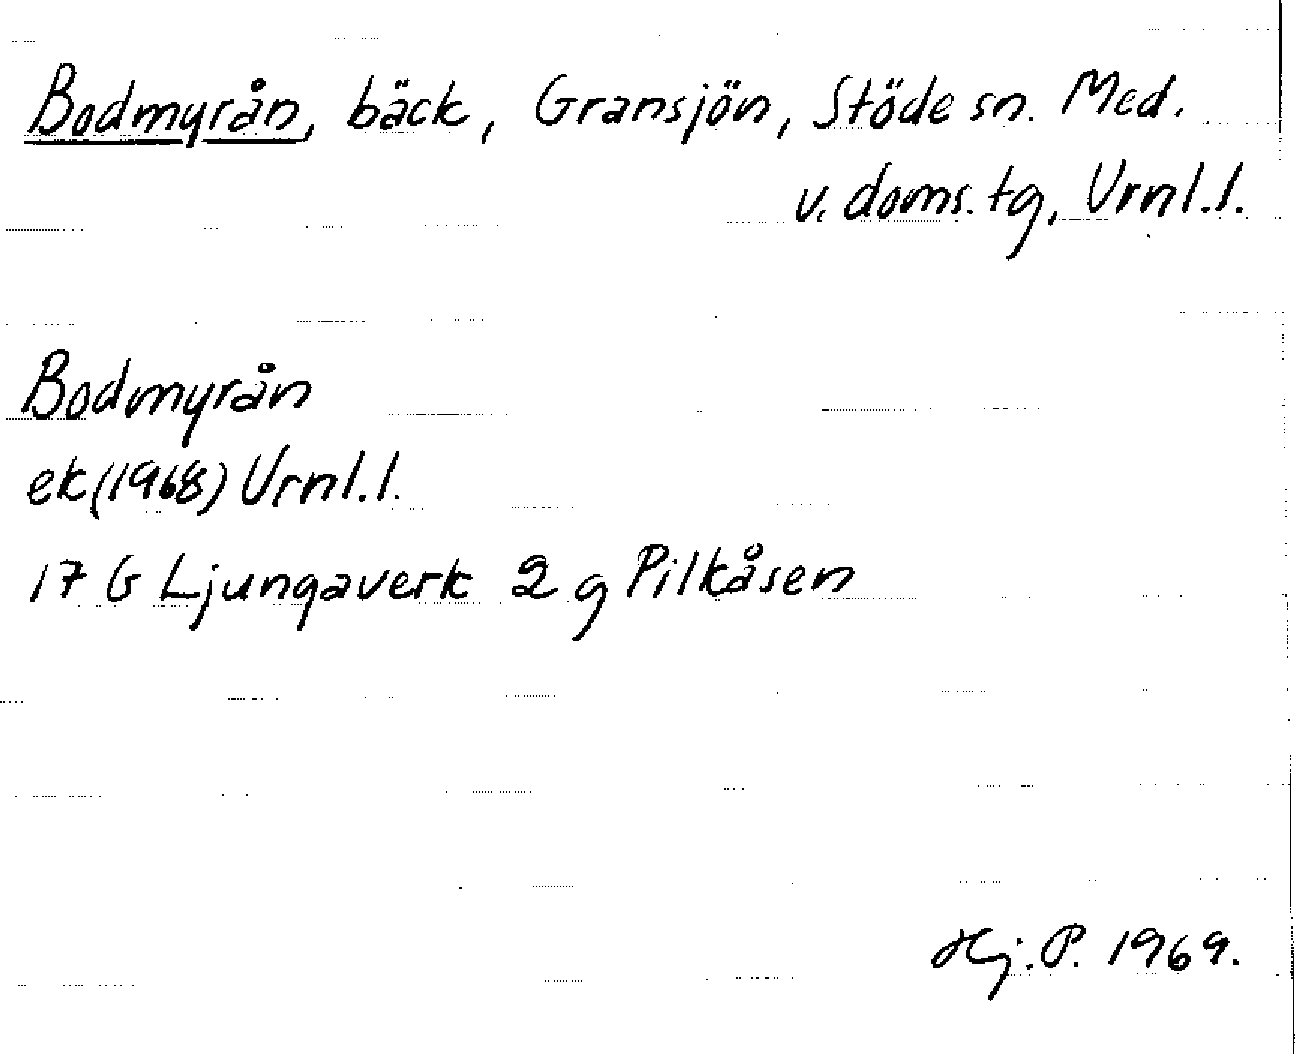 Bodmyrån, bäck, Gransjön, Stöde sn. Med.
v. doms. tg, Vrnl.l.
Bodmyrån
ek (1968) Vrnl.l.
17 G Ljungaverk 2 g Pilkåsen
Hj. P. 1969.